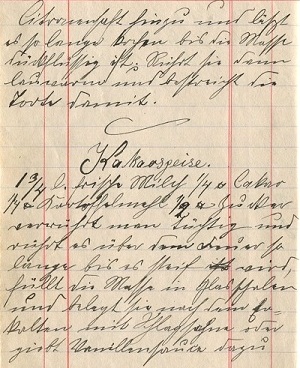 Citronensaft hinzu und läßt
es so lange kochen bis die Masse
dickflüssig ist. Rührt sie dann
lauwarm und bestreicht die
Torte damit.
Kakaospeise.
1 3/4 l. frische Milch 1/4 Cakao
1/4 Kartoffelmehl 1/2 Zucker
verrührt man tüchtig und
rührt es über dem Feuer so
lange bis es steif wird,
füllt die Masse in Glasschalen
und belegt sie nach dem Er-
kalten mit Schlagsahne oder
giebt Vanillensauce dazu